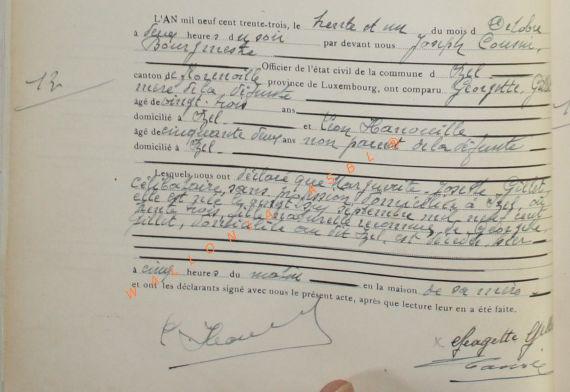 L'AN mil neuf cent trente-trois, le trente et un du mois d Octobre
à deux heures du soir par devant nous Joseph Cousin,
Bourgmestre
Officier de l'état civil de la commune d Izel
canton de Florenville province de Luxembourg, ont comparu Georgette, Gillet
mère de la défunte
âgé de vingt-trois ans
domicilié à Izel et Léon Hanouille
âgé de cinquante deux ans non parent de la défunte
domicilié à Izel
12
Lesquels nous ont déclaré que Marguerite-Josette Gillet,
célibataire, sans profession, domiciliée à Izel, où
elle est née le vingt-six septembre mil neuf cent
trente trois, fille naturelle reconnue de Georgette
Gillet, domiciliée au dit Izel, est décédée hier
à cinq heures du matin en la maison de sa mère
et ont les déclarants signé avec nous le présent acte, après que lecture leur en a été faite.
Georgette Gillet
WALLONIA ASBL ©